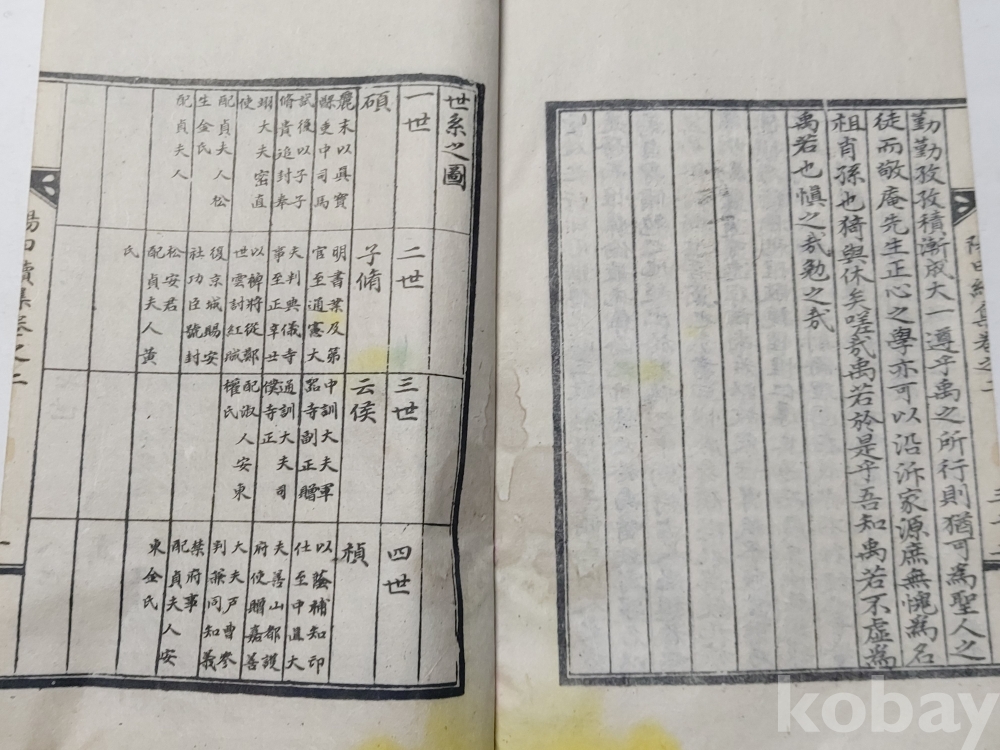 勤勤孜孜積漸成大一遵乎禹之所行則猶可爲聖人之
徒而敬庵先生正心之學亦可以沿泝家源庶無愧爲名
祖肖孫也猗與休矣嗟哉禹若於是乎吾知禹若不虛爲
禹若也愼之哉勉之哉
世系之圖
一世
碩
麗末以眞寶
縣吏中司馬
試後以子子
脩貴追封奉
翊大夫密直
使
配貞夫人松
生金氏
配貞夫人
二世
子脩
明書業及第
官至通憲大
夫判典儀寺
事至正辛丑
以裨將從鄭
世雲討紅賊
復京城賜安
社功臣號封
松安君
配貞夫人黃
氏
三世
云侯
中訓大夫軍
器寺副正贈
通訓大夫司
僕寺正
配淑人安東
權氏
四世
禎
以蔭補知印
仕至中直大
夫善山都護
府使贈嘉善
大夫戶曹參
判兼同知義
禁府事
配貞夫人安
東金氏
kobay